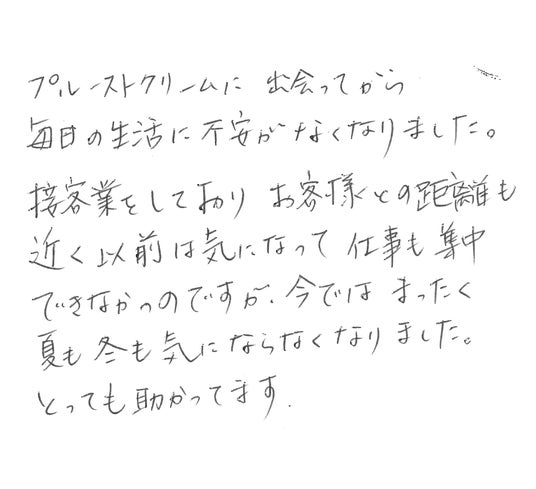 プルーストクリームに 出会ってから
毎日の生活に不安がなくなりました。
接客業をしており お客様との距離も
近く以前は気になって 仕事も集中
できなかったのですが、今では まったく
夏も冬も気にならなくなりました。
とっても助かってます.